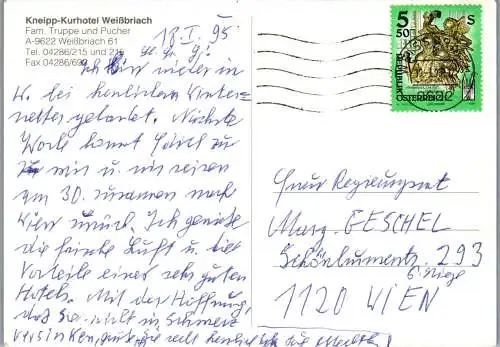 Kneipp-Kurhotel Weißbriach
Fam. Truppe und Pucher
A-9622 Weißbriach 61
Tel. 04286/215 und 215
Fax 04286/69
18. I. 95
Ich bin wieder in
W. bei herrlichem Winter-
wetter gelandet. Nächste
Woche kommt zu
mir u. wir reisen
am 30. zusammen nach
Wien zurück. Ich genieße
die frische Luft u. die
Vorteile eines sehr guten
Hotels. Mit der Hoffnung,
daß Sie nicht im Schnee
versinken, grüßt Sie recht herzlich
5 50 S
REPUBLIK
ÖSTERREICH
Frau Regierungsrat
Marg. GESCHEL
293
6. Stiege
1120 WIEN